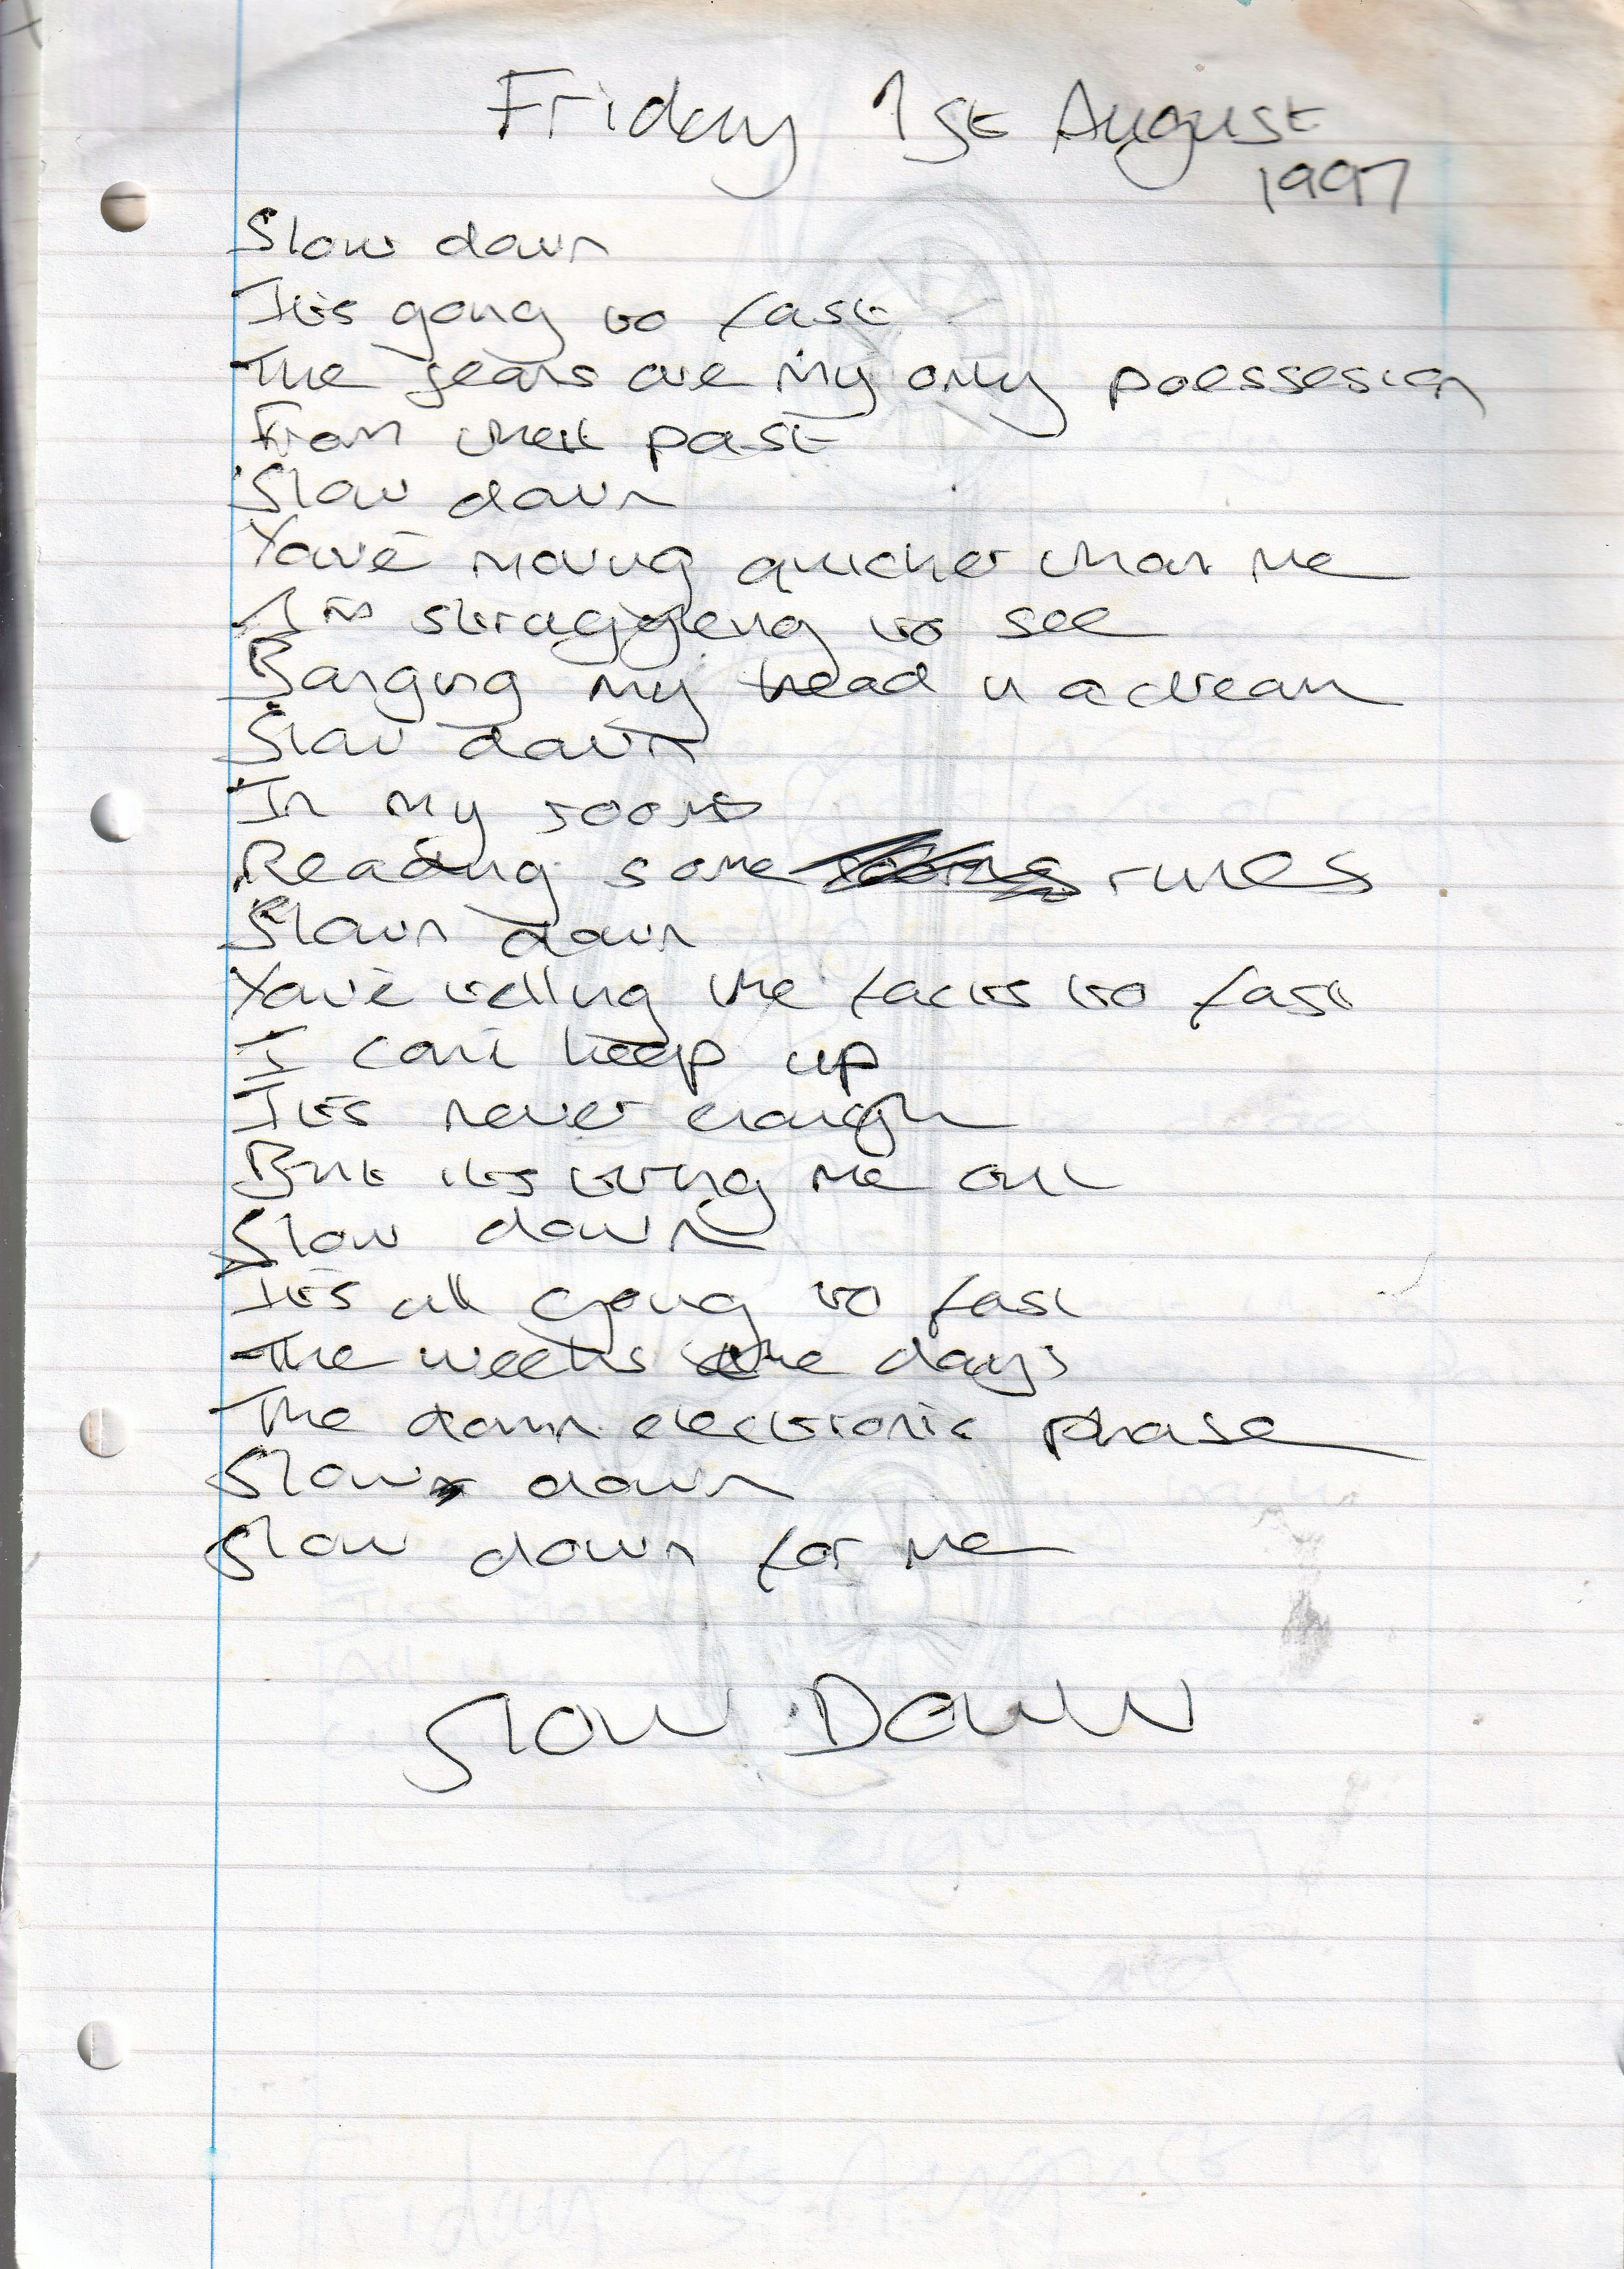 Friday 1st August
1997
Slow down
It's going to fast
The years are my only poessesion
From that past
Slow down
You're moving quicker than me
I'm struggleing to see
Banging my head in a dream
Slow down
In my room
Reading some rules
Slown down
You're telling the facts to fast
I can't keep up
It's never enough
But its tiring me out
Slow down
It's all going to fast
The weeks the days
The damn electronic phase
Slow down
Slow down for me
Slow Down